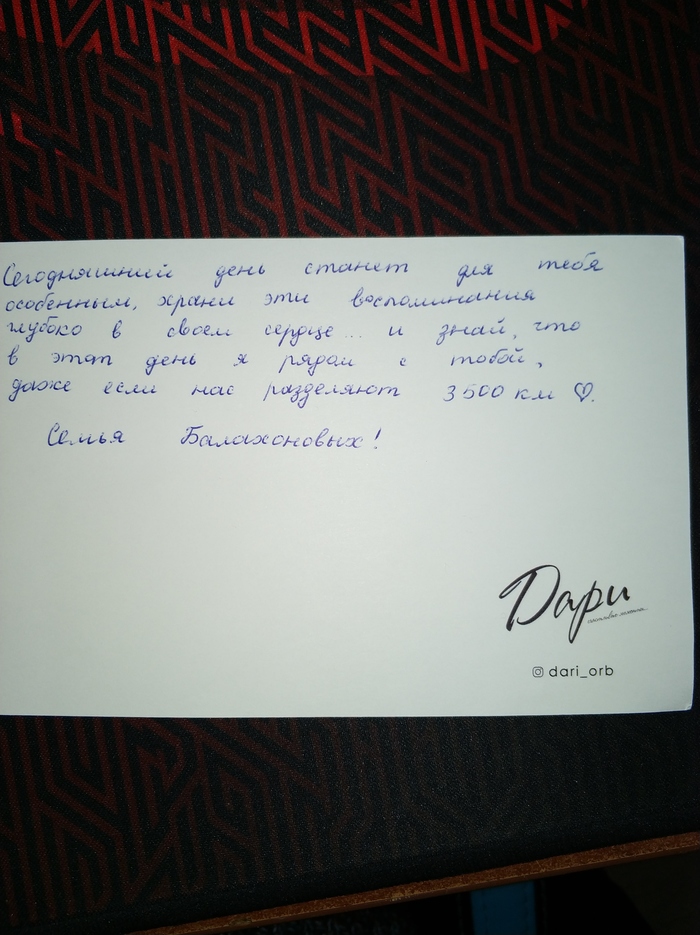 Сегодняшний день станет для тебя
особенным, храни эти воспоминания
глубоко в своем сердце... и знай, что
в этот день я рядом с тобой,
даже если нас разделяют 3500 км ♡.
Семья Балахоновых!
Дари
dari_orb